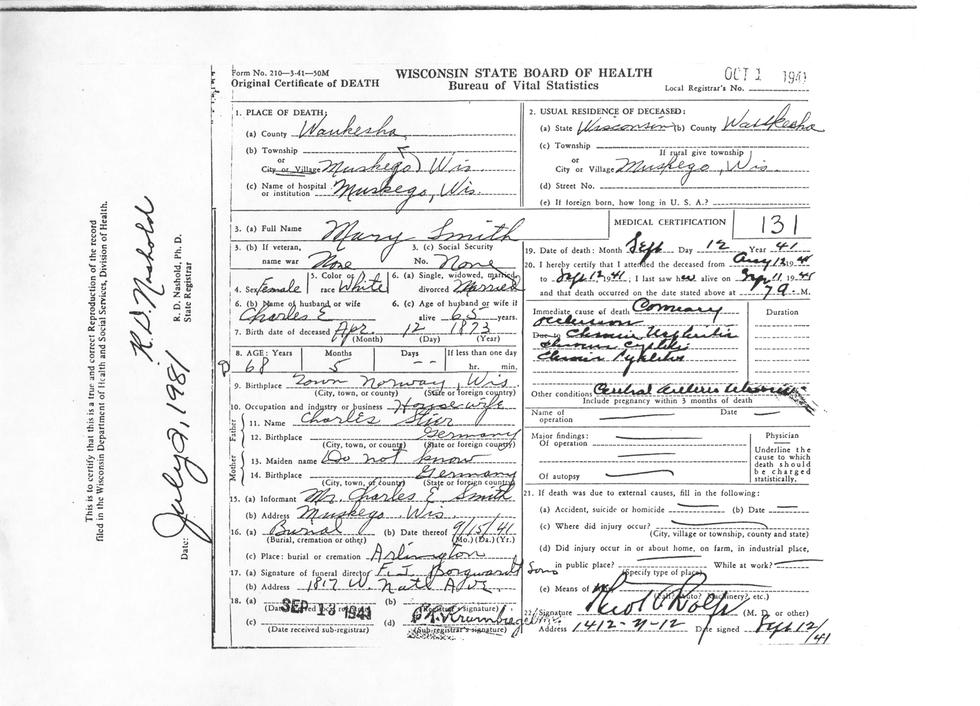 Form No. 210—3-41—50M
Original Certificate of DEATH
WISCONSIN STATE BOARD OF HEALTH
Bureau of Vital Statistics
OCT 1 1941
Local Registrar's No.
1. PLACE OF DEATH:
(a) County Waukesha
(b) Township
or
City or Village Muskego, Wis.
(c) Name of hospital
or institution Muskego, Wis.
2. USUAL RESIDENCE OF DECEASED:
(a) State Wisconsin (b) County Waukesha
(c) Township
If rural give township
or
City or Village Muskego, Wis.
(d) Street No.
(e) If foreign born, how long in U. S. A.?
3. (a) Full Name Mary Smith
3. (b) If veteran,
name war None
3. (c) Social Security
No. None
4. Sex Female
5. Color or
race White
6. (a) Single, widowed, married,
divorced Married
6. (b) Name of husband or wife
Charles E
6. (c) Age of husband or wife if
alive 65 years.
7. Birth date of deceased Apr. 12 1873
(Month) (Day) (Year)
8. AGE: Years Months Days If less than one day
68 5 -- hr. min.
9. Birthplace Town Norway, Wis.
(City, town, or county) (State or foreign country)
10. Occupation and industry or business Housewife
Father
11. Name Charles Stier
12. Birthplace Germany
(City, town, or county) (State or foreign country)
Mother
13. Maiden name Do not know
14. Birthplace Germany
(City, town, of county) (State or foreign country)
15. (a) Informant Mr. Charles E. Smith
(b) Address Muskego Wis.
16. (a) Burial (b) Date thereof 9/15/41
(Burial, cremation or other) (Mo.) (Da.) (Yr.)
(c) Place: burial or cremation Arlington
17. (a) Signature of funeral director F. J. Borgwardt Sons
(b) Address 1817 W. Natl Ave.
18. (a) SEP 13 1941 (b)
(Registrar's signature)
(c) (d)
(Date received sub-registrar) (Sub-registrar's signature)
MEDICAL CERTIFICATION 131
19. Date of death: Month Sept Day 12 Year 41
20. I hereby certify that I attended the deceased from Aug 12 19 41
to Sept 12 19 41, I last saw her alive on Sep 11, 19 41
and that death occurred on the date stated above at 7 a. M.
Immediate cause of death Coronary
occlusion
Duration
Due to Chronic Nephritis
Chronic Cystitis
Chronic
Other conditions
Include pregnancy within 3 months of death
Name of
operation Date
Major findings:
Of operation
Of autopsy
Physician
Underline the
cause to which
death should
be charged
statistically.
21. If death was due to external causes, fill in the following:
(a) Accident, suicide or homicide (b) Date
(c) Where did injury occur?
(City, village or township, county and state)
(d) Did injury occur in or about home, on farm, in industrial place,
in public place? While at work?
(Specify type of place)
(e) Means of
22. Signature (M. D. or other)
Address 1412-21-12 Date signed Sept 12/41
This is to certify that this is a true and correct Reproduction of the record
filed in the Wisconsin Department of Health and Social Services, Division of Health.
R.D. Nashold
R. D. Nashold, Ph. D.
State Registrar
Date: July 2, 1981